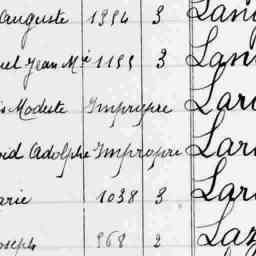 Auguste 1994 3 Lan
uel Jean Mie 1199 3 Lan
is Modeste Impropre Lar
oid Adolphe Impropre Lar
arie 1038 3 Lar
oseph 968 2 Laz